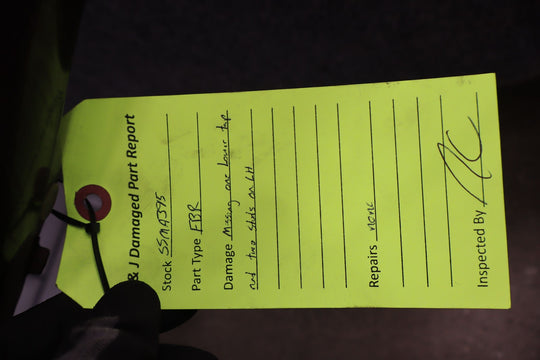 & J Damaged Part Report
Stock SSM4595
Part Type FBR
Damage Missing one lower top
and two studs on LH
Repairs none
Inspected By